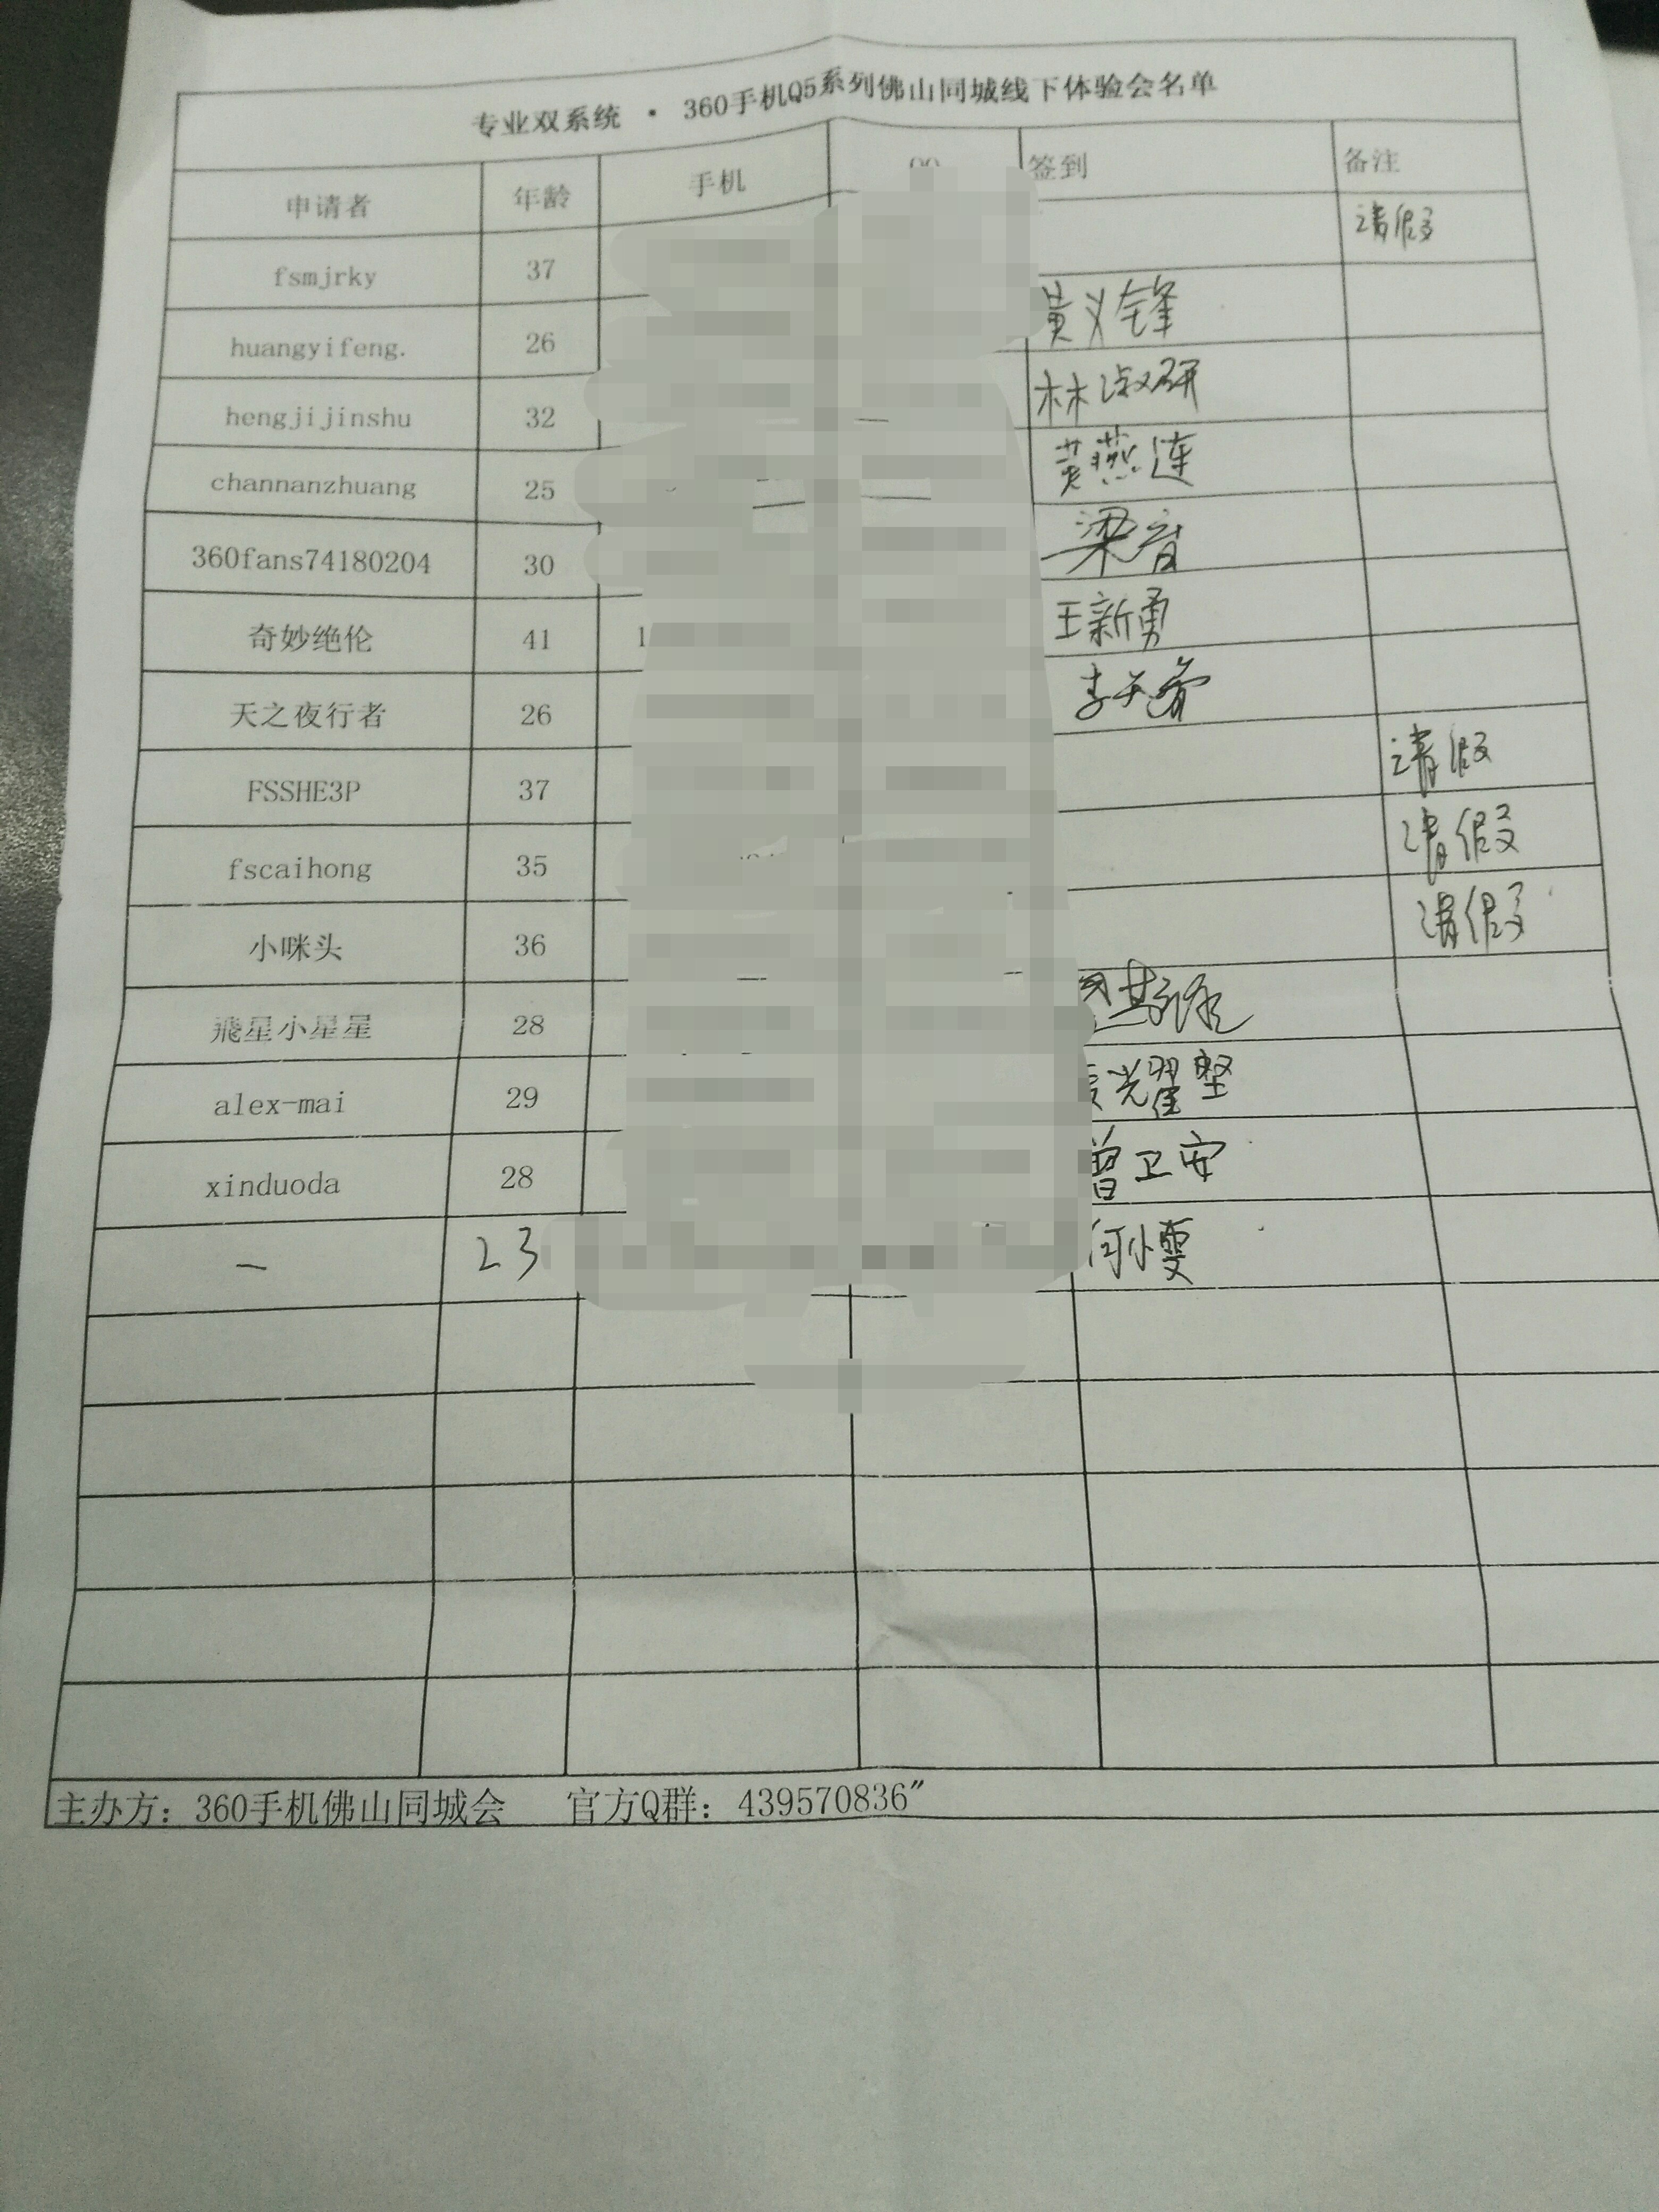 专业双系统 · 360手机Q5系列佛山同城线下体验会名单
申请者 年龄 手机 签到 备注
fsmjrky 37 请假
huangyifeng. 26 黄义锋
hengjijinshu 32 林淑研
channanzhuang 25 黄燕连
360fans74180204 30 梁
奇妙绝伦 41 1 王新勇
天之夜行者 26 李
FSSHE3P 37 请假
fscaihong 35 请假
小咪头 36 请假
飛星小星星 28
alex-mai 29 光耀坚
xinduoda 28 曾卫安
— 23 何小雯
主办方：360手机佛山同城会 官方Q群：439570836”